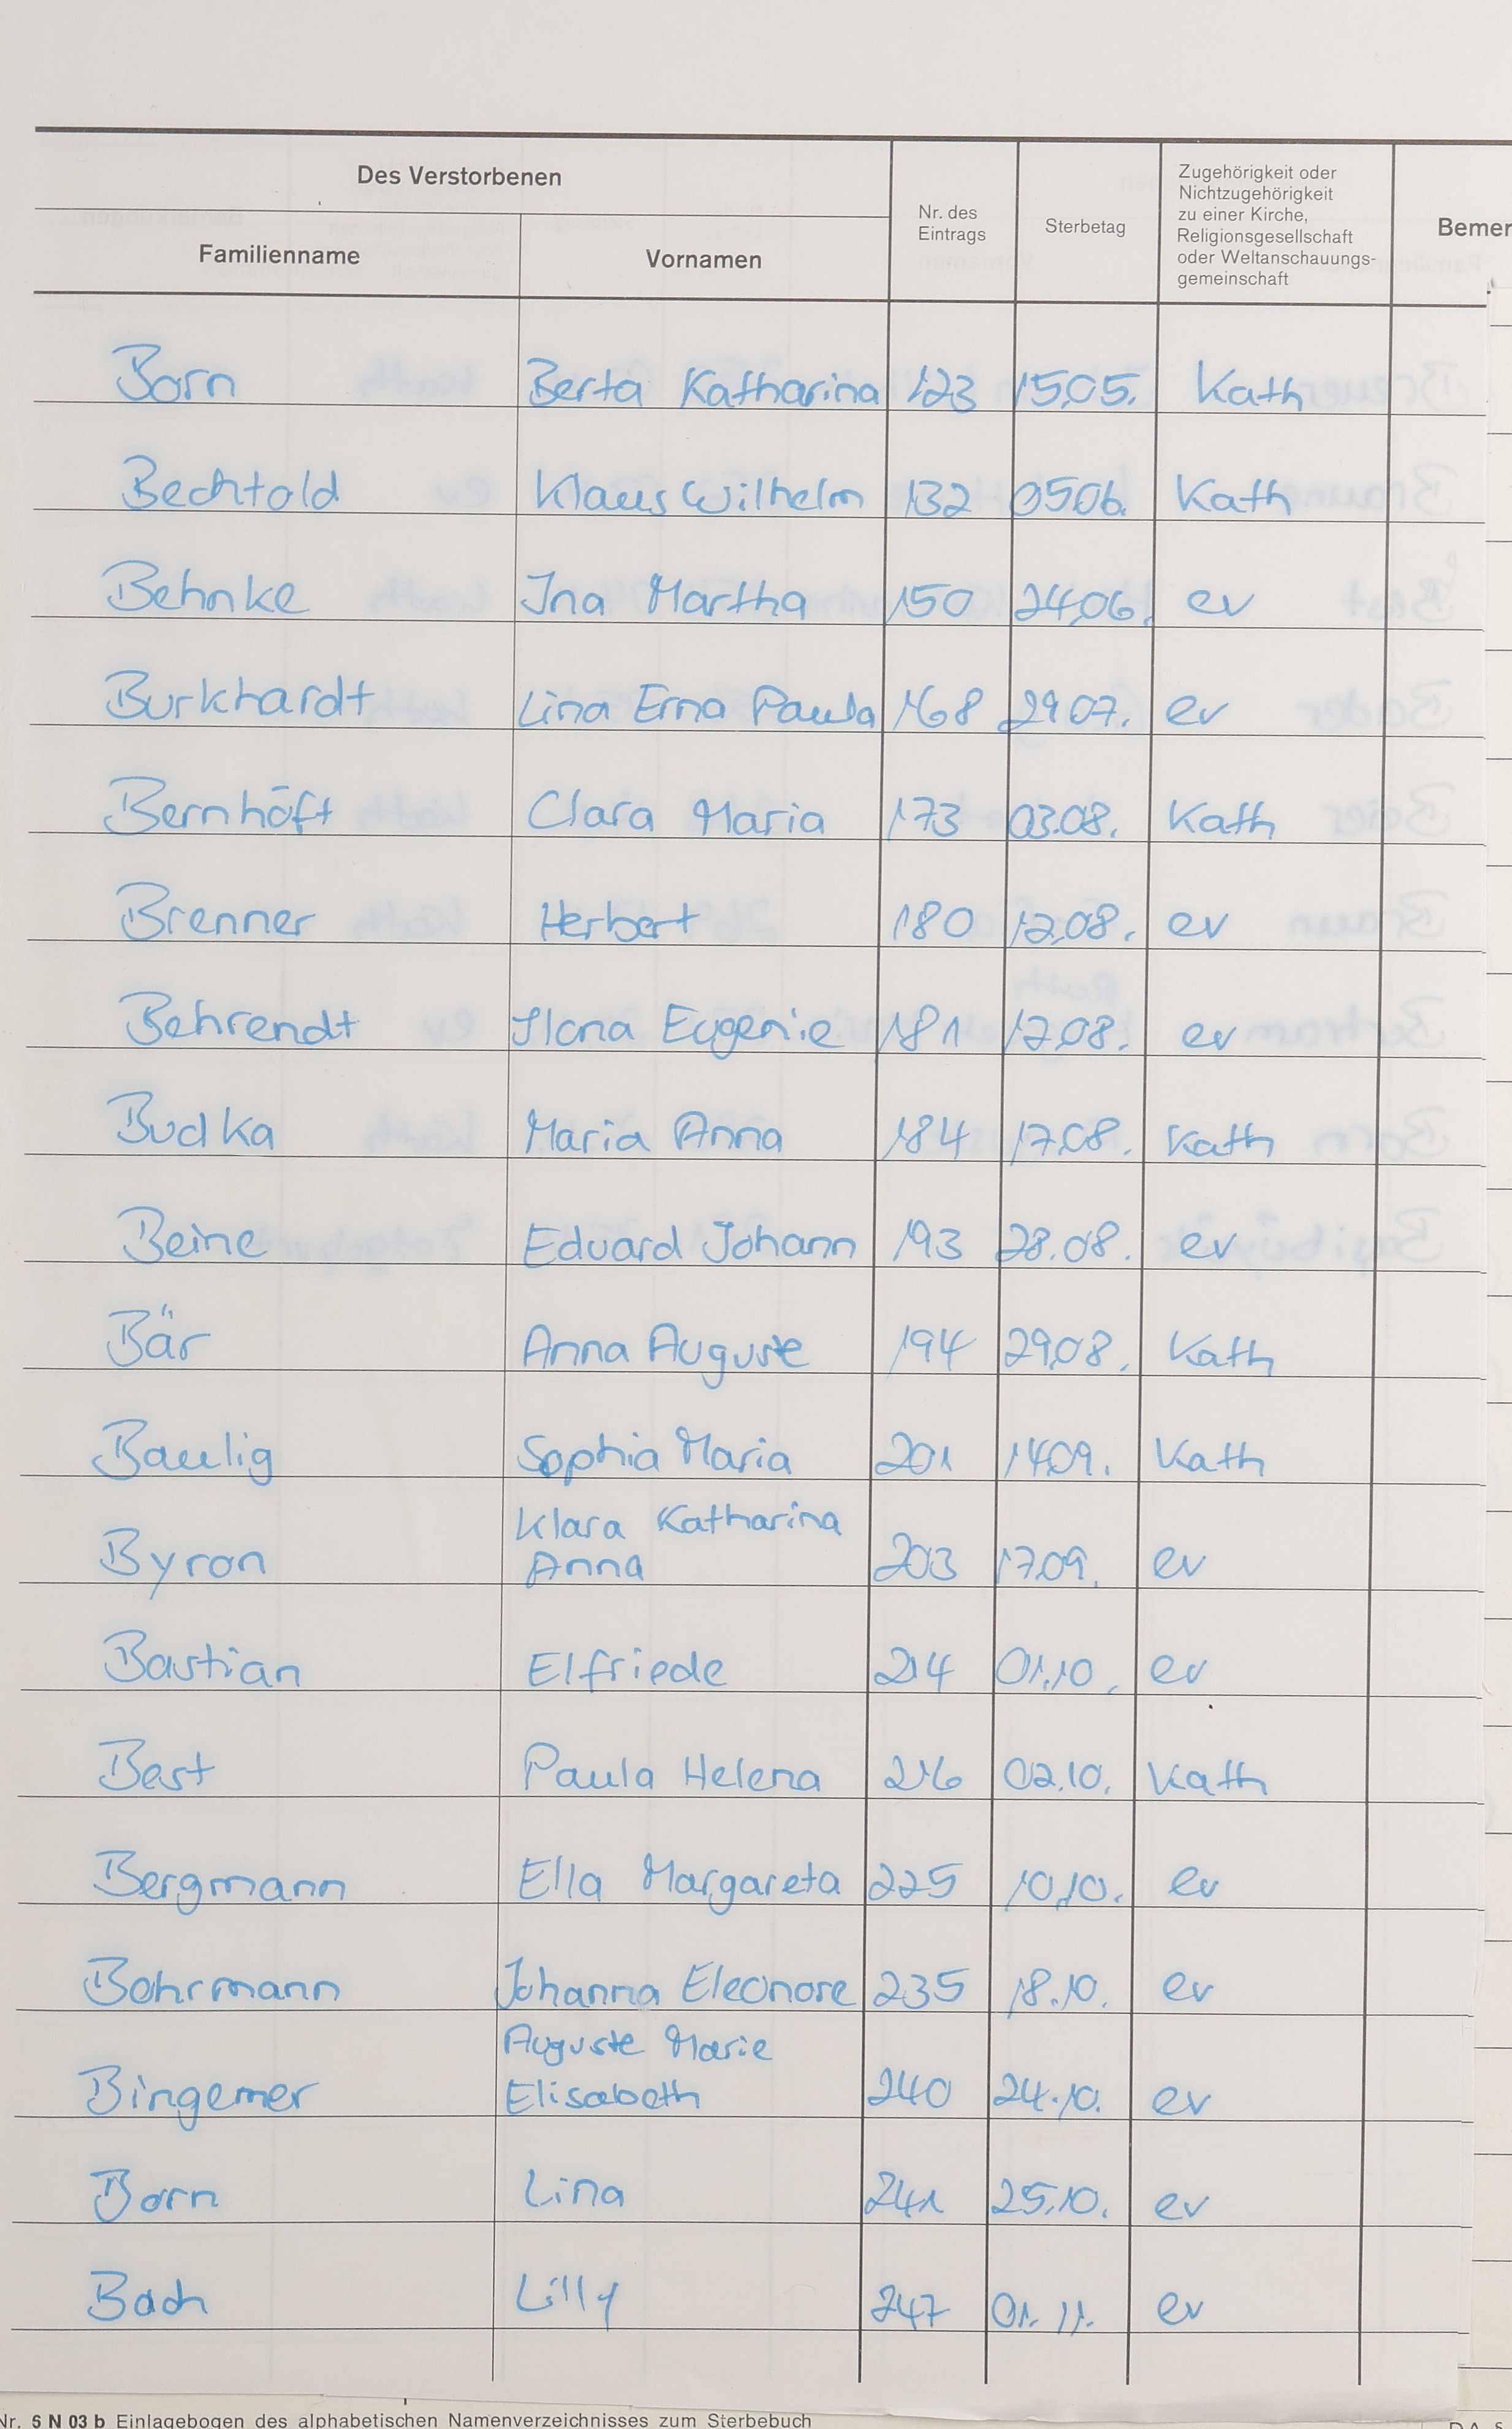 Des Verstorbenen
Familienname Vornamen
Nr. des
Eintrags
Sterbetag
Zugehörigkeit oder
Nichtzugehörigkeit
zu einer Kirche,
Religionsgesellschaft
oder Weltanschauungs-
gemeinschaft
Bemer
Born Berta Katharina 123 15.05. Kath
Bechtold Klaus Wilhelm 132 05.06. Kath
Behnke Ina Martha 150 24.06. ev
Burkhardt Lina Erna Paula 168 29.07. ev
Bernhöft Clara Maria 173 03.08. Kath
Brenner Herbert 180 12.08. ev
Behrendt Ilona Eugenie 181 17.08. ev
Budka Maria Anna 184 17.08. Kath
Beine Eduard Johann 193 28.08. ev
Bär Anna Auguste 194 29.08. Kath
Baulig Sophia Maria 201 14.09. Kath
Klara Katharina
Byron Anna 203 17.09. ev
Bastian Elfriede 214 01.10. ev
Best Paula Helena 216 02.10. Kath
Bergmann Ella Margareta 225 10.10. ev
Bohrmann Johanna Eleonore 235 18.10. ev
Auguste Marie
Bingemer Elisabeth 240 24.10. ev
Born Lina 241 25.10. ev
Bach Lilly 247 01.11. ev
Nr. 6 N 03 b Einlagebogen des alphabetischen Namenverzeichnisses zum Sterbebuch